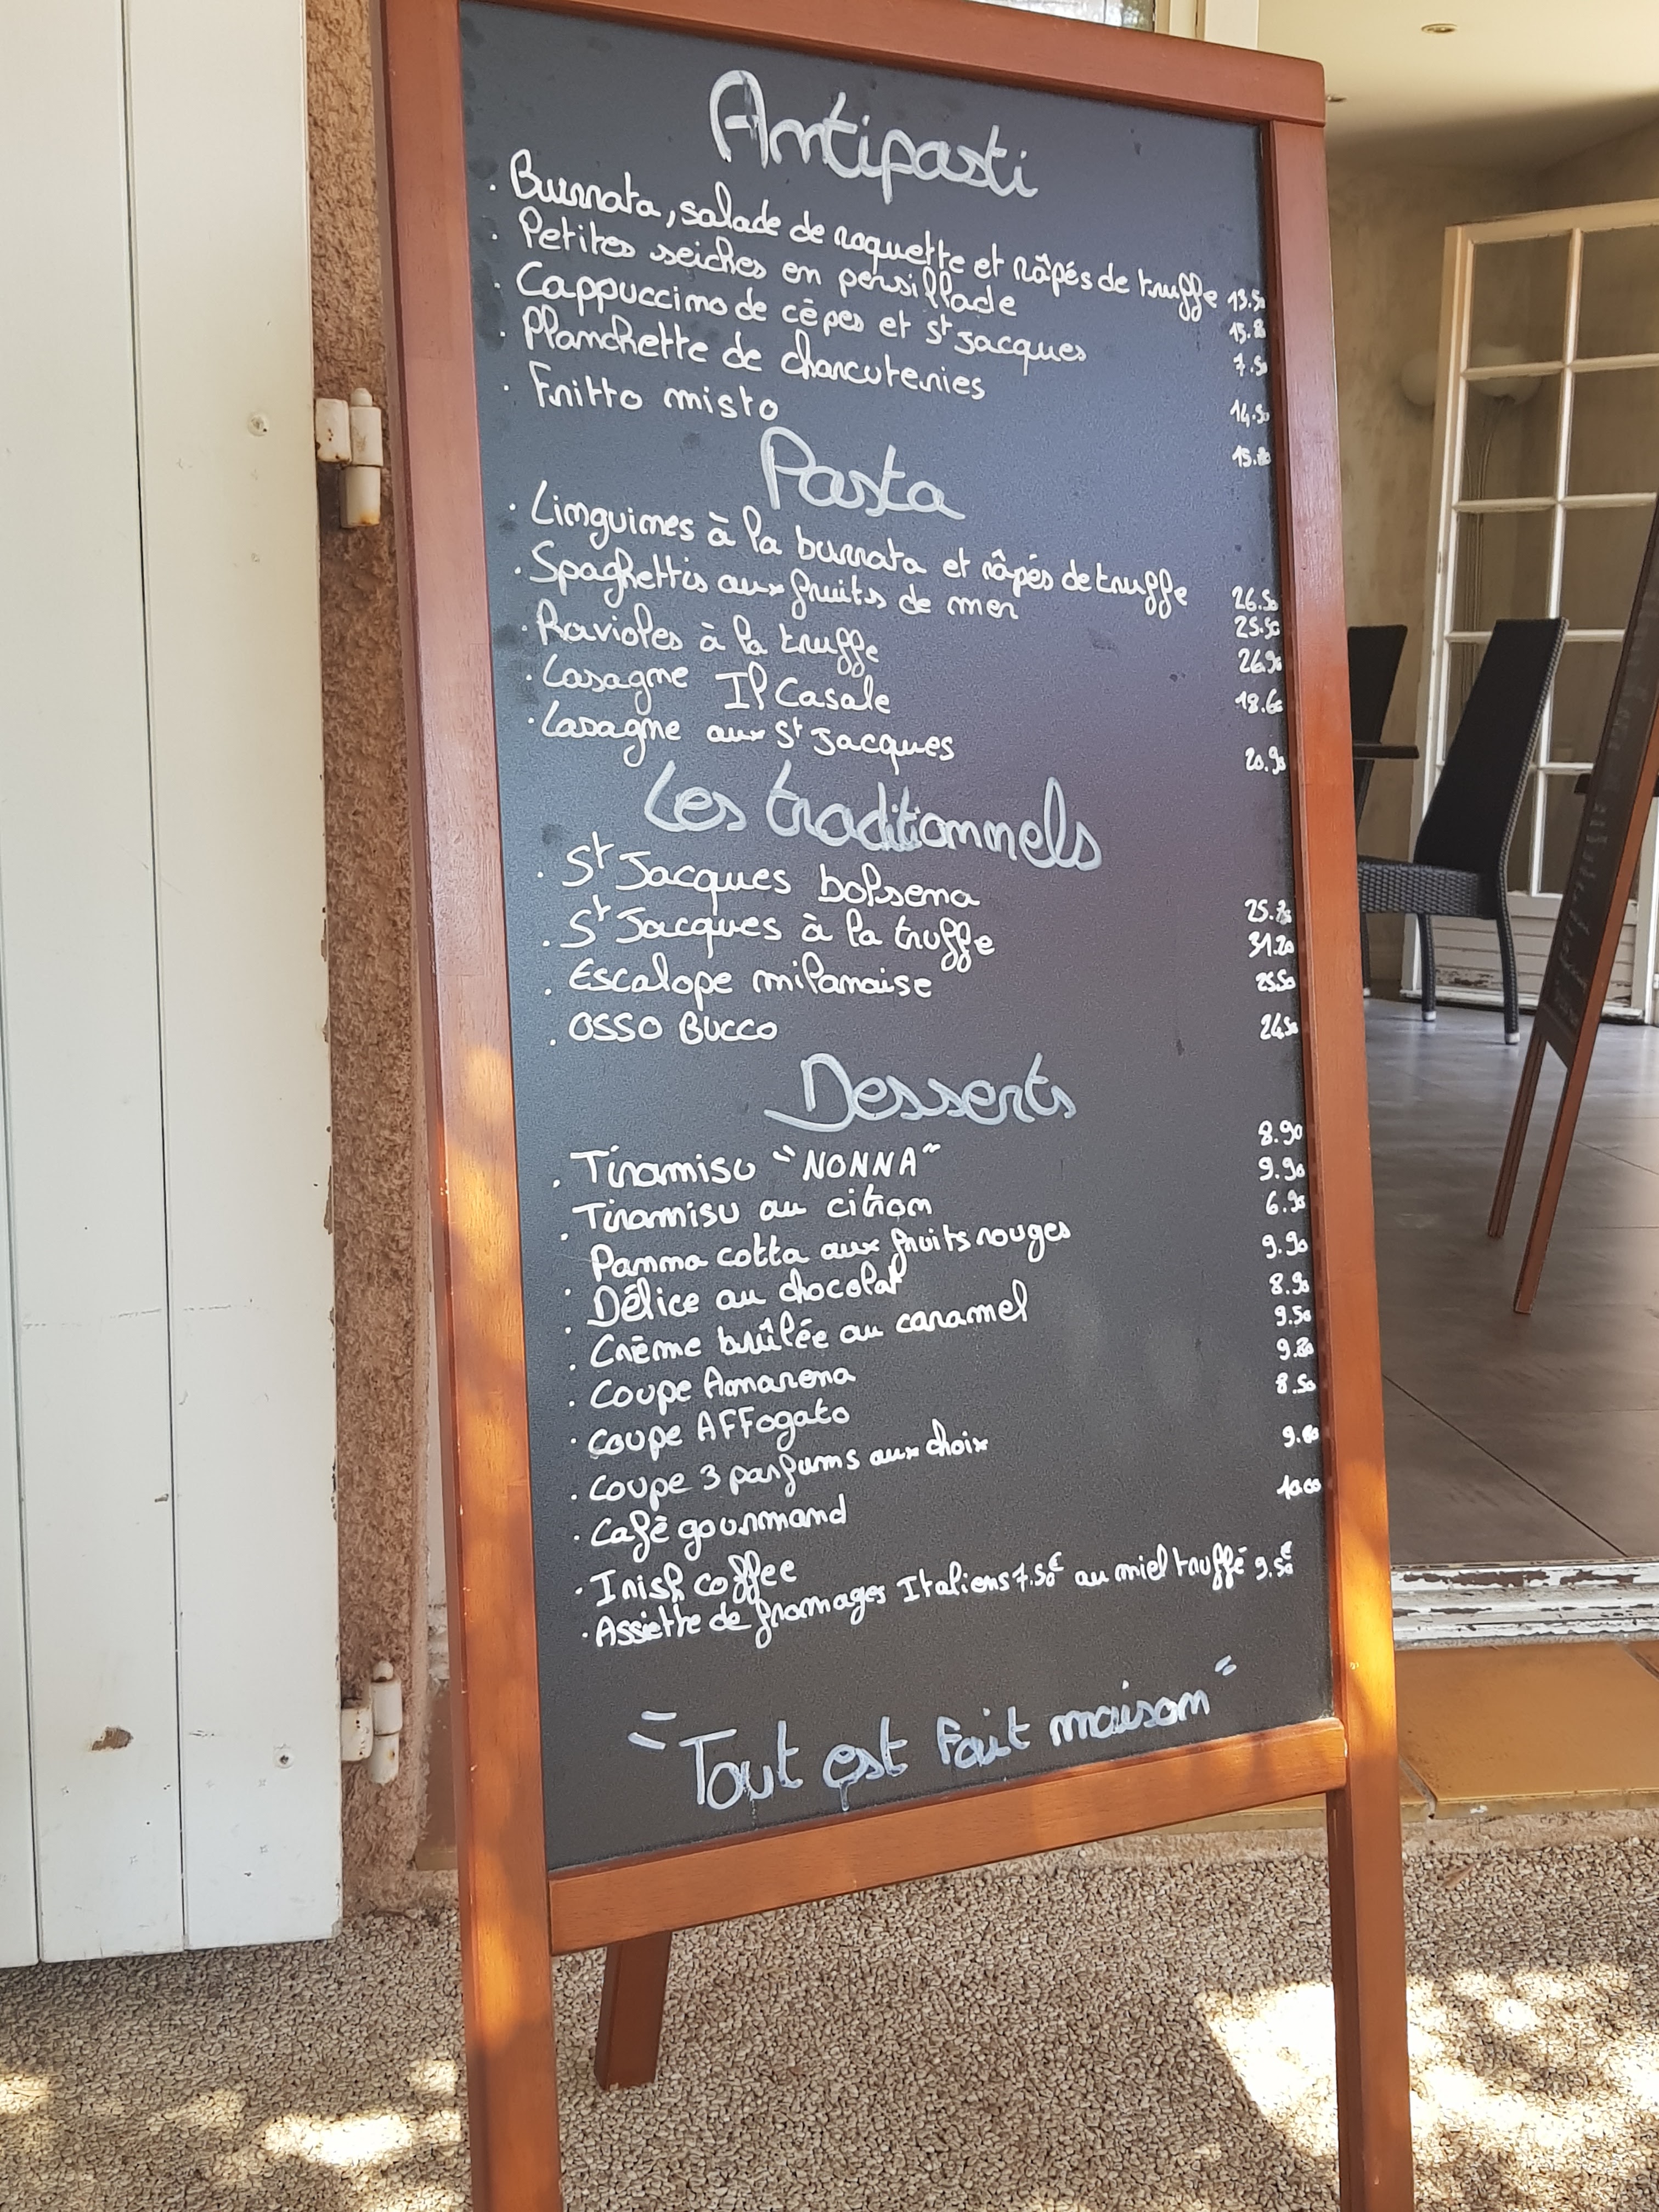 Antipasti
. Burrata, salade de roquette et râpés de truffe 13.50
. Petites seiches en persillade
. Cappuccino de cèpes et St Jacques 7.50
. Planchette de charcuteries 14.50
. Fritto misto
Pasta
. Linguines à la burrata et râpés de truffe 26.50
. Spaghettis aux fruits de mer 25.50
. Ravioles à la truffe 26.90
. Lasagne Il Casale 18.60
. Lasagne aux St Jacques 20.90
Les traditionnels
. St Jacques bolsena
. St Jacques à la truffe 31.20
. Escalope milanaise 25.50
. OSSO BUCCO 24.50
Desserts
. Tiramisu "NONNA" 8.90
. Tiramisu au citron 9.90
. Panna cotta aux fruits rouges 6.90
. Délice au chocolat 9.90
. Crème brûlée au caramel 8.90
. Coupe Amarena 9.50
. Coupe AFFogato 9.80
. Coupe 3 parfums aux choix 8.50
. Café gourmand
. Irish coffee 10.00
. Assiette de fromages Italiens 7.50€ au miel truffé 9.50€
"Tout est fait maison"